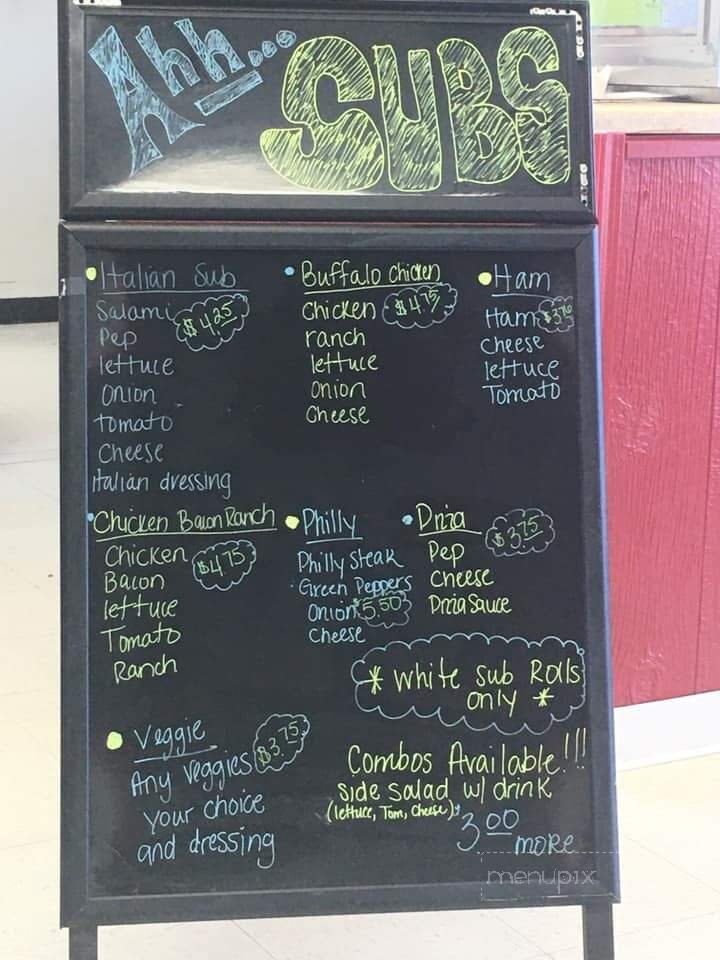 Ahh... SUBS
Italian Sub
Salami
$4.25
Pep
lettuce
Onion
tomato
Cheese
Italian dressing
Buffalo chicken
Chicken
$4.75
ranch
lettuce
Onion
Cheese
Ham
Ham
cheese
lettuce
Tomato
Chicken Bacon Ranch
Chicken
$4.75
Bacon
lettuce
Tomato
Ranch
Philly
Philly Steak
Green Peppers
Onion
$5.50
Cheese
Pizza
$3.75
Pep
Cheese
Pizza Sauce
* White Sub Rolls
only *
Veggie
$3.75
Any Veggies
your choice
and dressing
Combos Available!!!
side salad w/ drink
(lettuce, Tom, Cheese)
3.00
more
menupix